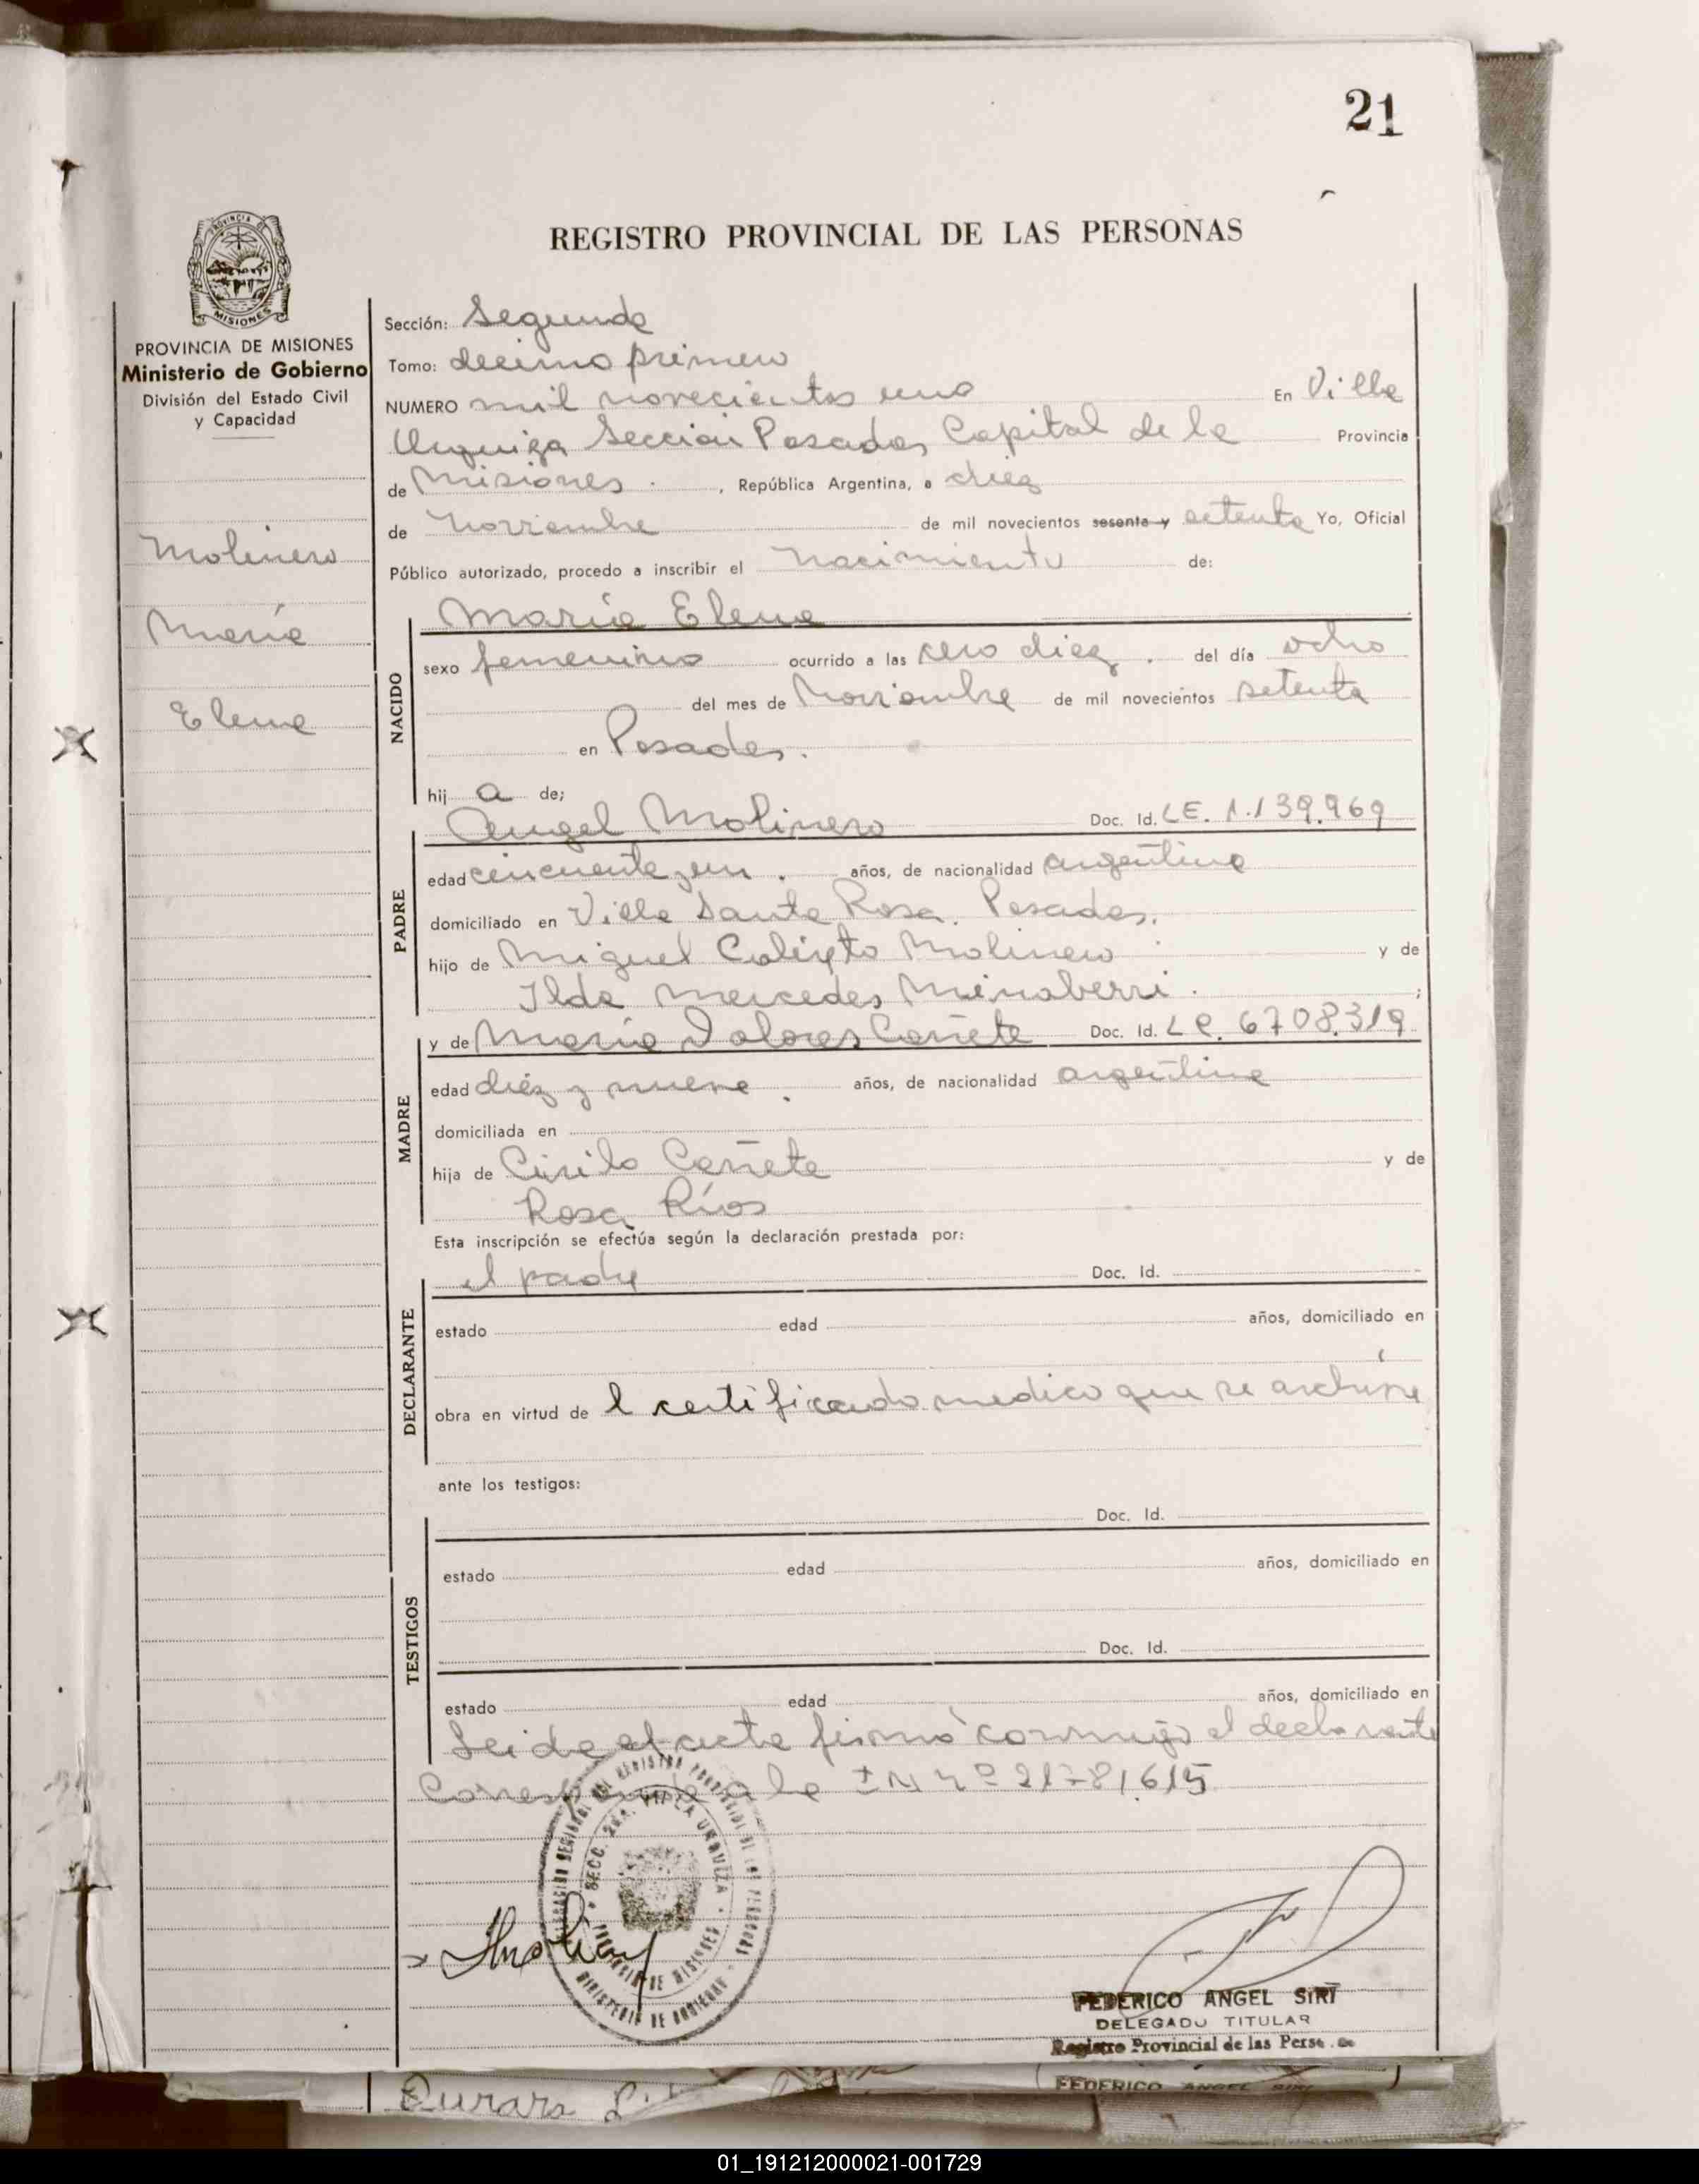 21
REGISTRO PROVINCIAL DE LAS PERSONAS
PROVINCIA
MISIONES
PROVINCIA DE MISIONES
Ministerio de Gobierno
División del Estado Civil
y Capacidad
Molinero
María
Elena
Sección: Segunda
Tomo: decimo primero
NUMERO mil novecientos uno En Villa
Urquiza Sección Posadas Capital de la Provincia
de Misiones , República Argentina, a diez
de Noviembre de mil novecientos sesenta y setenta Yo, Oficial
Público autorizado, procedo a inscribir el Nacimiento de:
NACIDO
María Elena
sexo femenino ocurrido a las cero diez . del día ocho
del mes de Noviembre de mil novecientos setenta
en Posadas.
hij a de;
PADRE
Angel Molinero Doc. Id. LE. 1.139.969
edad cincuenta y un . años, de nacionalidad argentina
domiciliado en Villa Santa Rosa. Posadas.
hijo de Miguel Calixto Molinero y de
Ilda Mercedes Minaberri . ;
MADRE
y de María Dolores Cañete Doc. Id. LC. 6708.319
edad diéz y nueve . años, de nacionalidad argentina
domiciliada en
hija de Cirilo Cañete y de
Rosa Ríos
Esta inscripción se efectúa según la declaración prestada por:
DECLARANTE
el padre Doc. Id.
estado edad años, domiciliado en
obra en virtud de l certificado medico que se archiva
ante los testigos:
TESTIGOS
Doc. Id.
estado edad años, domiciliado en
Doc. Id.
estado edad años, domiciliado en
Leida el acta firmó conmigo el declarante
Corresponde a la Nº 21781.615
SECC. 2da. VILLA URQUIZA
PROVINCIA DE MISIONES
MINISTERIO DE GOBIERNO
FEDERICO ANGEL SIRI
DELEGADO TITULAR
Registro Provincial de las Perso
FEDERICO ANGEL SIRI
01_191212000021-001729